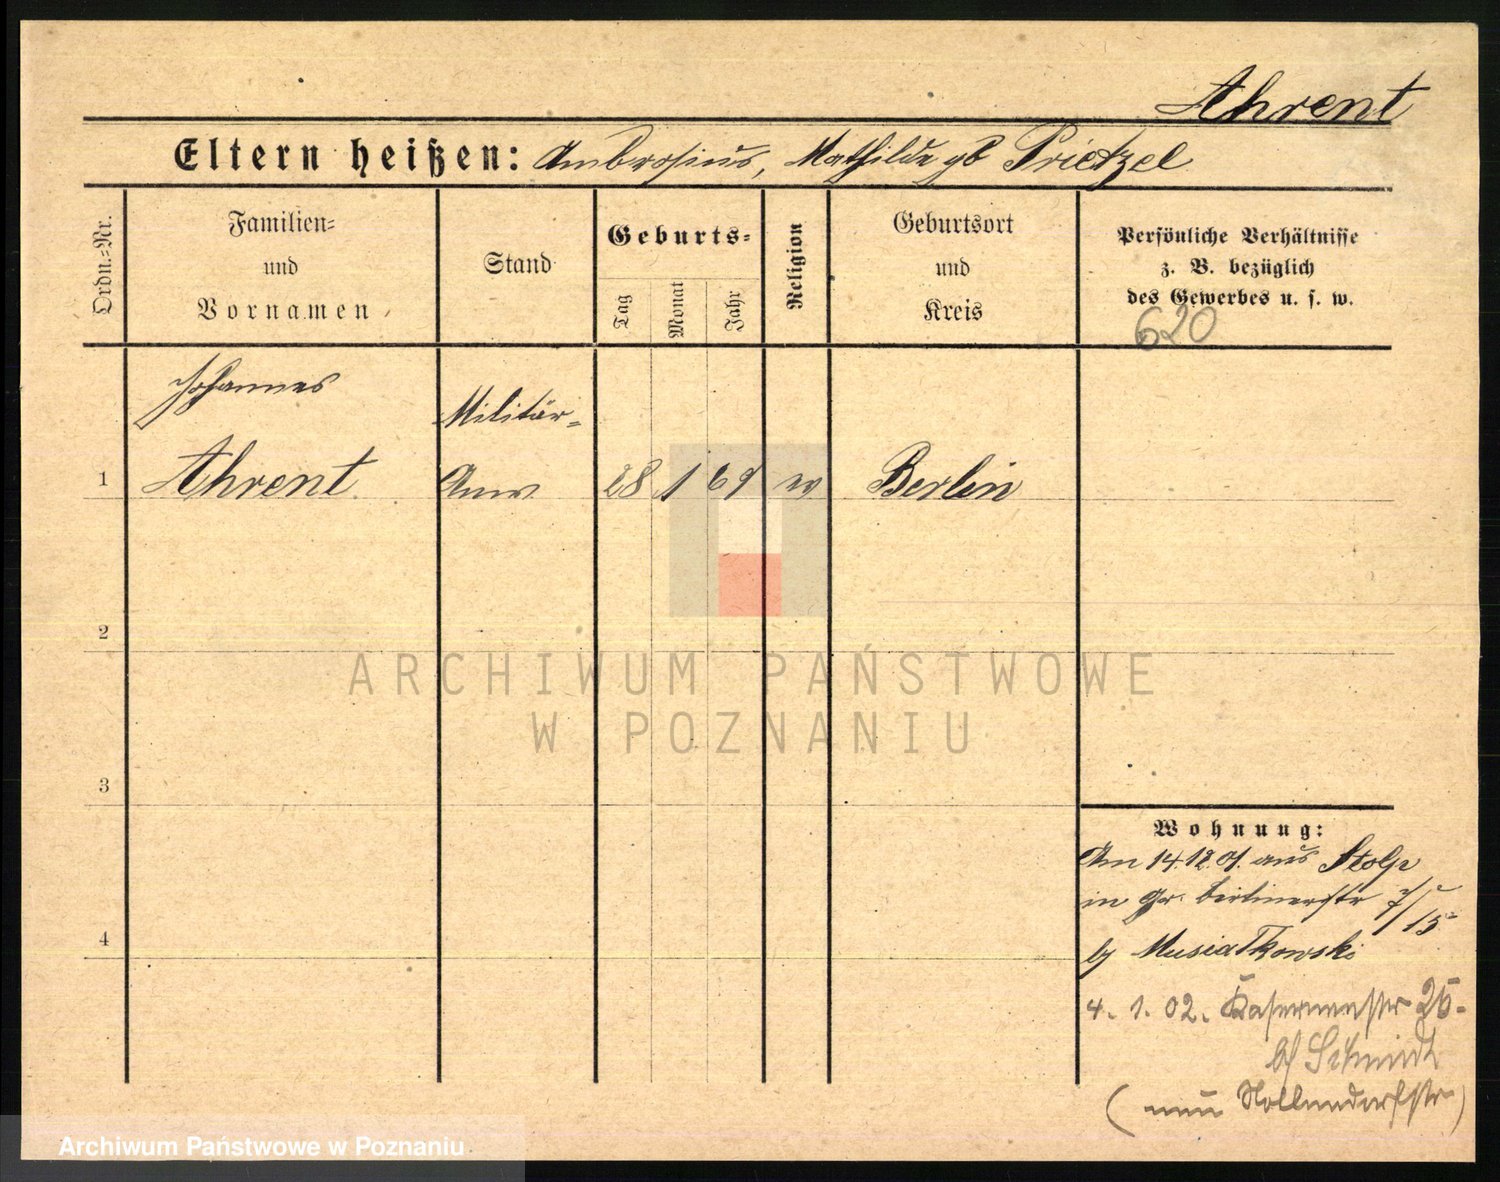 Ahrent
Eltern heißen: Ambrosius, Mathilde gb Prietzel
Ordn.-Nr.
Familien-
und
Vornamen
Stand
Geburts-
Tag
Monat
Jahr
Religion
Geburtsort
und
Kreis
Persönliche Verhältnisse
z. B. bezüglich
des Gewerbes u. s. w.
620
Johannes
Militär-
1 Ahrent Anw 28 1 69 ev Berlin
2
ARCHIWUM PAŃSTWOWE
W POZNANIU
3
Wohnung:
Am 14.12.01. aus Stolp
in Gr. Berlinerstr 7/15
4
by Musiatkowski
4. 1. 02. Kasernenstr 26.
bf Schmidt
( neue Nollendorfstr )
Archiwum Państwowe w Poznaniu